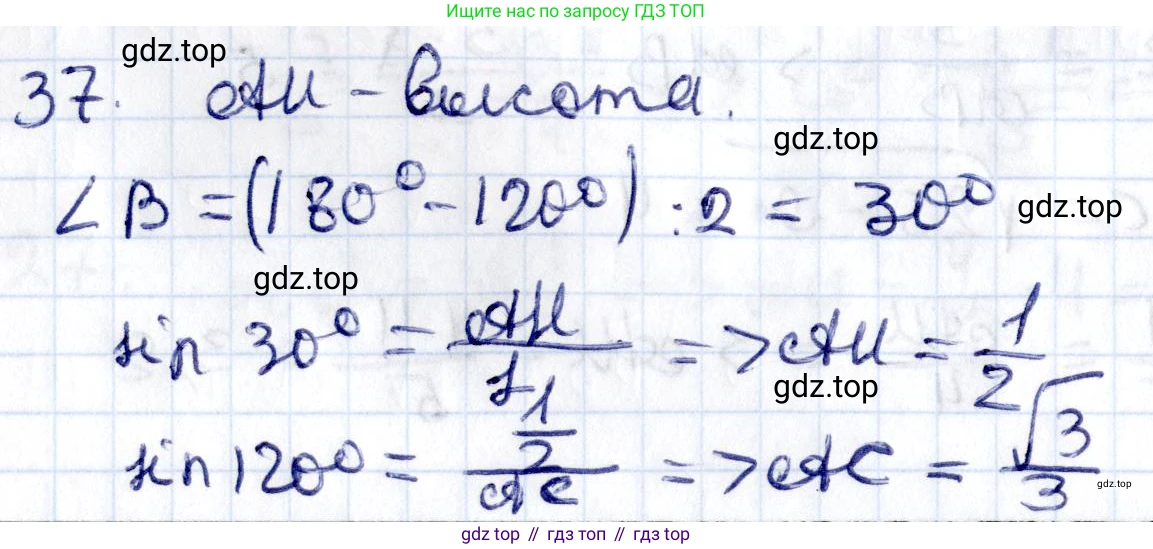 Ищите нас по запросу ГДЗ ТОП
gdz.top
37. AH - высота.
gdz.top
∠B = (180° - 120°) : 2 = 30°
gdz.top
gdz.top
sin 30° = AH/1 => AH = 1/2
gdz.top
sin 120° = (1/2)/AC => AC = √3/3
gdz.top
gdz top // гдз топ // gdz.top